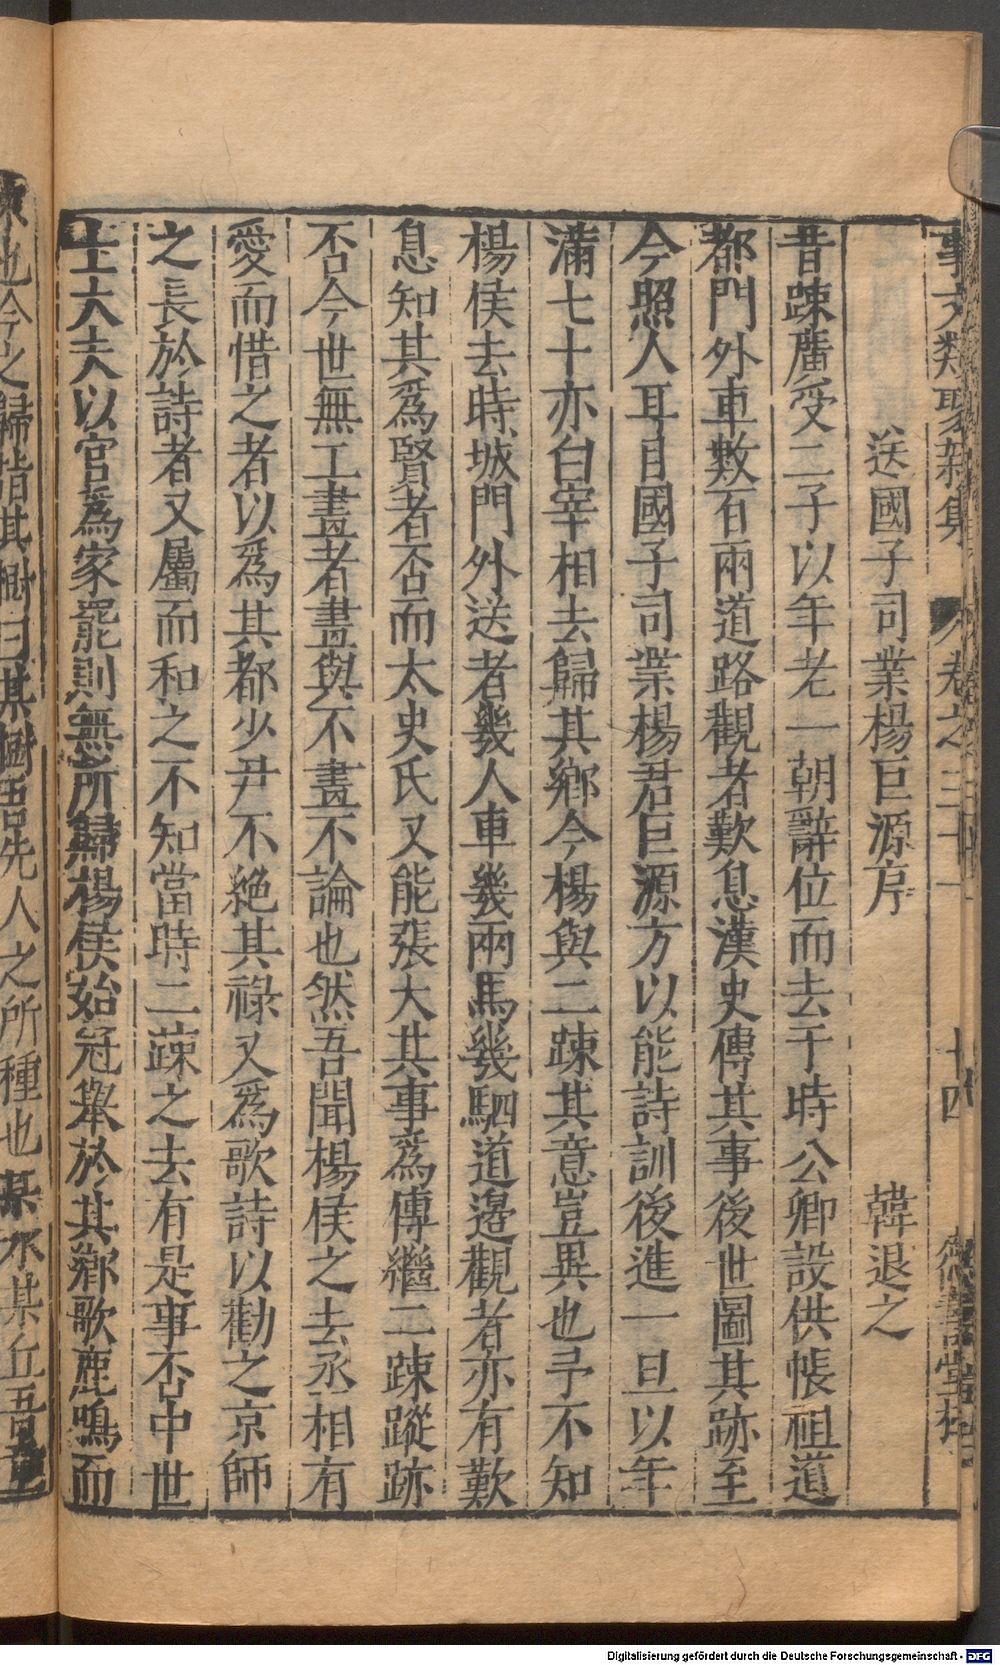 事文類聚雜集 卷之三十一 十四
送國子司業楊巨源序 韓退之
昔踈廣受二子以年老一朝辭位而去于時公卿設供帳祖道
都門外車數百兩道路觀者歎息漢史傳其事後世圖其跡至
今照人耳目國子司業楊君巨源方以能詩訓後進一旦以年
滿七十亦白宰相去歸其鄉今楊與二踈其意豈異也予不知
楊侯去時城門外送者幾人車幾兩馬幾駟道邊觀者亦有歎
息知其爲賢者否而太史氏又能張大其事爲傳繼二踈蹤跡
否今世無工畫者畫與不畫不論也然吾聞楊侯之去丞相有
愛而惜之者以爲其都少尹不絶其祿又爲歌詩以勸之京師
之長於詩者又屬而和之不知當時二踈之去有是事否中世
士大夫以官爲家罷則無所歸楊侯始冠舉於其鄉歌鹿鳴而
來也今之歸指其樹曰某樹吾先人之所種也某水某丘吾童
Digitalisierung gefördert durch die Deutsche Forschungsgemeinschaft - DFG